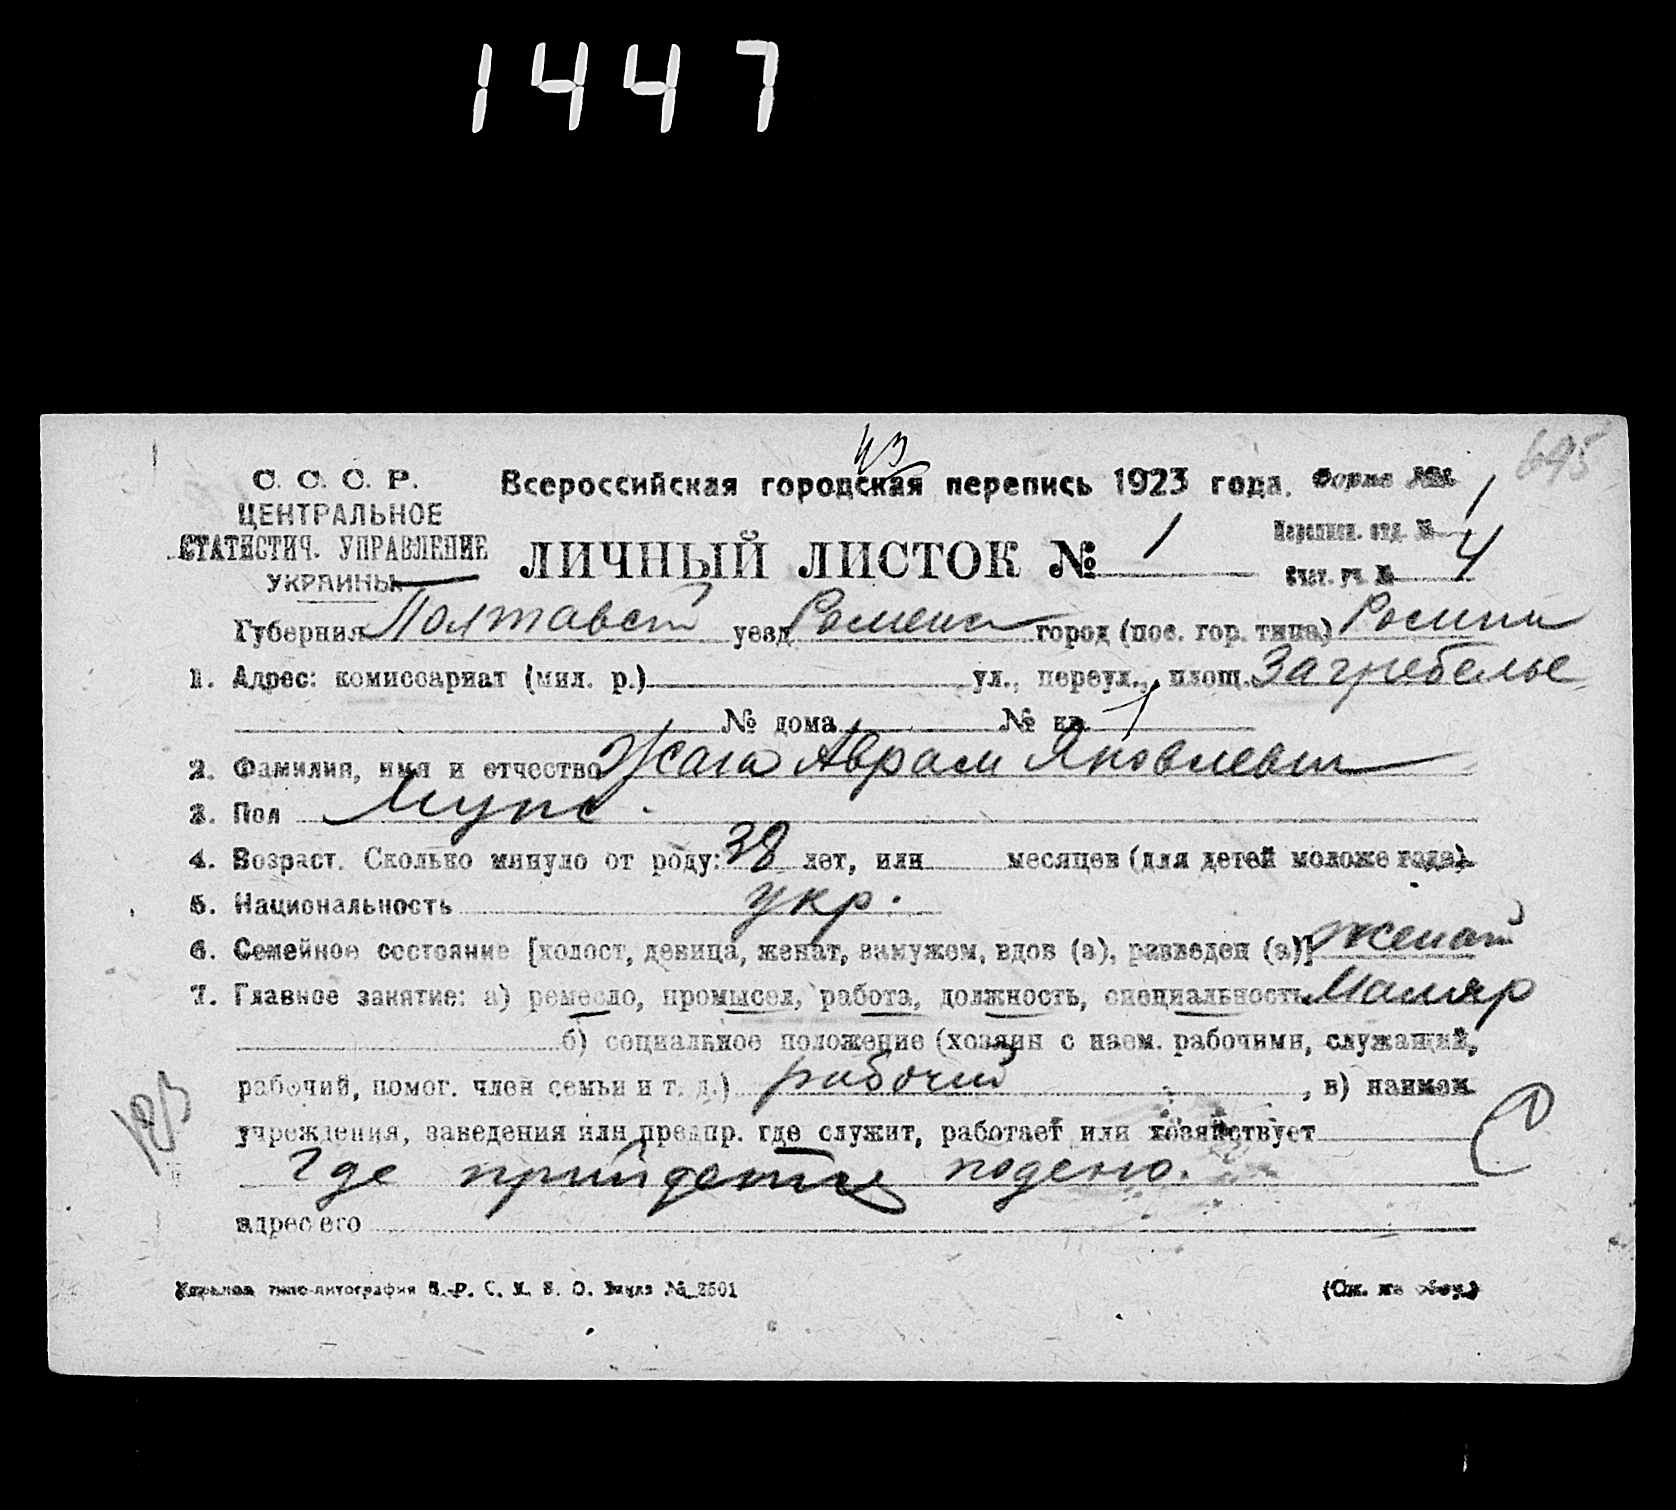 1447
695
43
С. С. С. Р.
ЦЕНТРАЛЬНОЕ
СТАТИСТИЧ. УПРАВЛЕНИЕ
УКРАИНЫ
Всероссийская городская перепись 1923 года. Форма №1
ЛИЧНЫЙ ЛИСТОК № 1
Переписн. отд. № 1
Счет. уч. № 4
Губерния Полтавск уезд Роменск город (пос. гор. типа) Ромны
1. Адрес: комиссариат (мил. р.) ул., переул., площ. Загребелье
№ дома № кв. 1
2. Фамилия, имя и отчество Аврам Яковлевич
3. Пол Мужс.
4. Возраст. Сколько минуло от роду: 38 лет, или месяцев (для детей моложе года)
5. Национальность укр.
6. Семейное состояние [холост, девица, женат, замужем, вдов (а), разведен (а)] женат
7. Главное занятие: а) ремесло, промысел, работа, должность, специальность Маляр
б) социальное положение (хозяин с наем. рабочими, служащий,
рабочий, помог. член семьи и т. д.) рабочий, в) наимен.
учреждения, заведения или предпр. где служит, работает или хозяйствует
где прийдется подено.
адрес его
типо-литография № 2501
(См. на обор.)